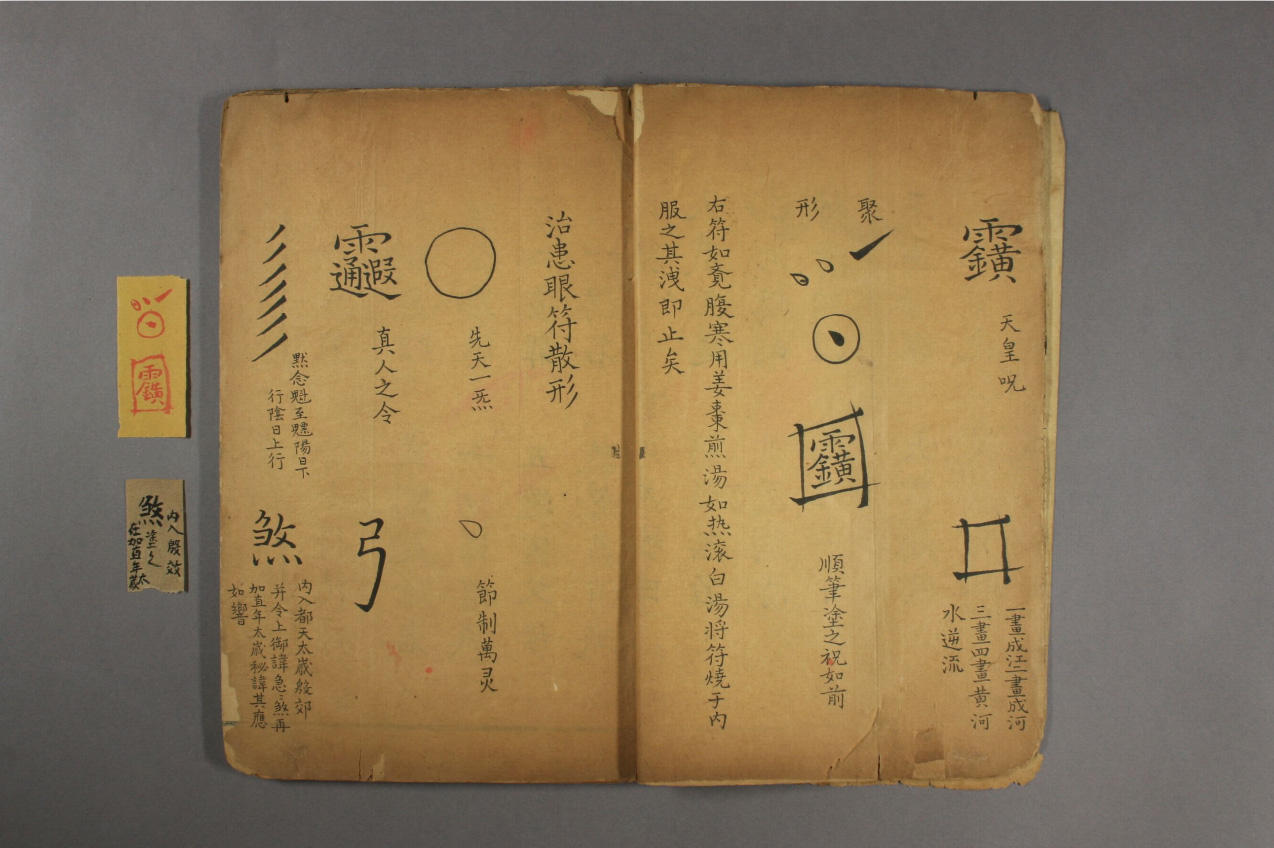 天皇呪
一畫成江二畫成河
三畫四畫黄河
水逆流
聚
形
順筆塗之祝如前
右符如覔腹寒用姜棗煎湯如热滚白湯将符燒于内
服之其洩即止矣
治患眼符散形
先天一炁
節制萬灵
真人之令
弓
默念魁至魒陽日下
行陰日上行
煞
内入都天太歲殷郊
并令上御諱急急煞再
加直年太歲秘諱其應
如響
内入殷效
煞塗之
在加直年太歲